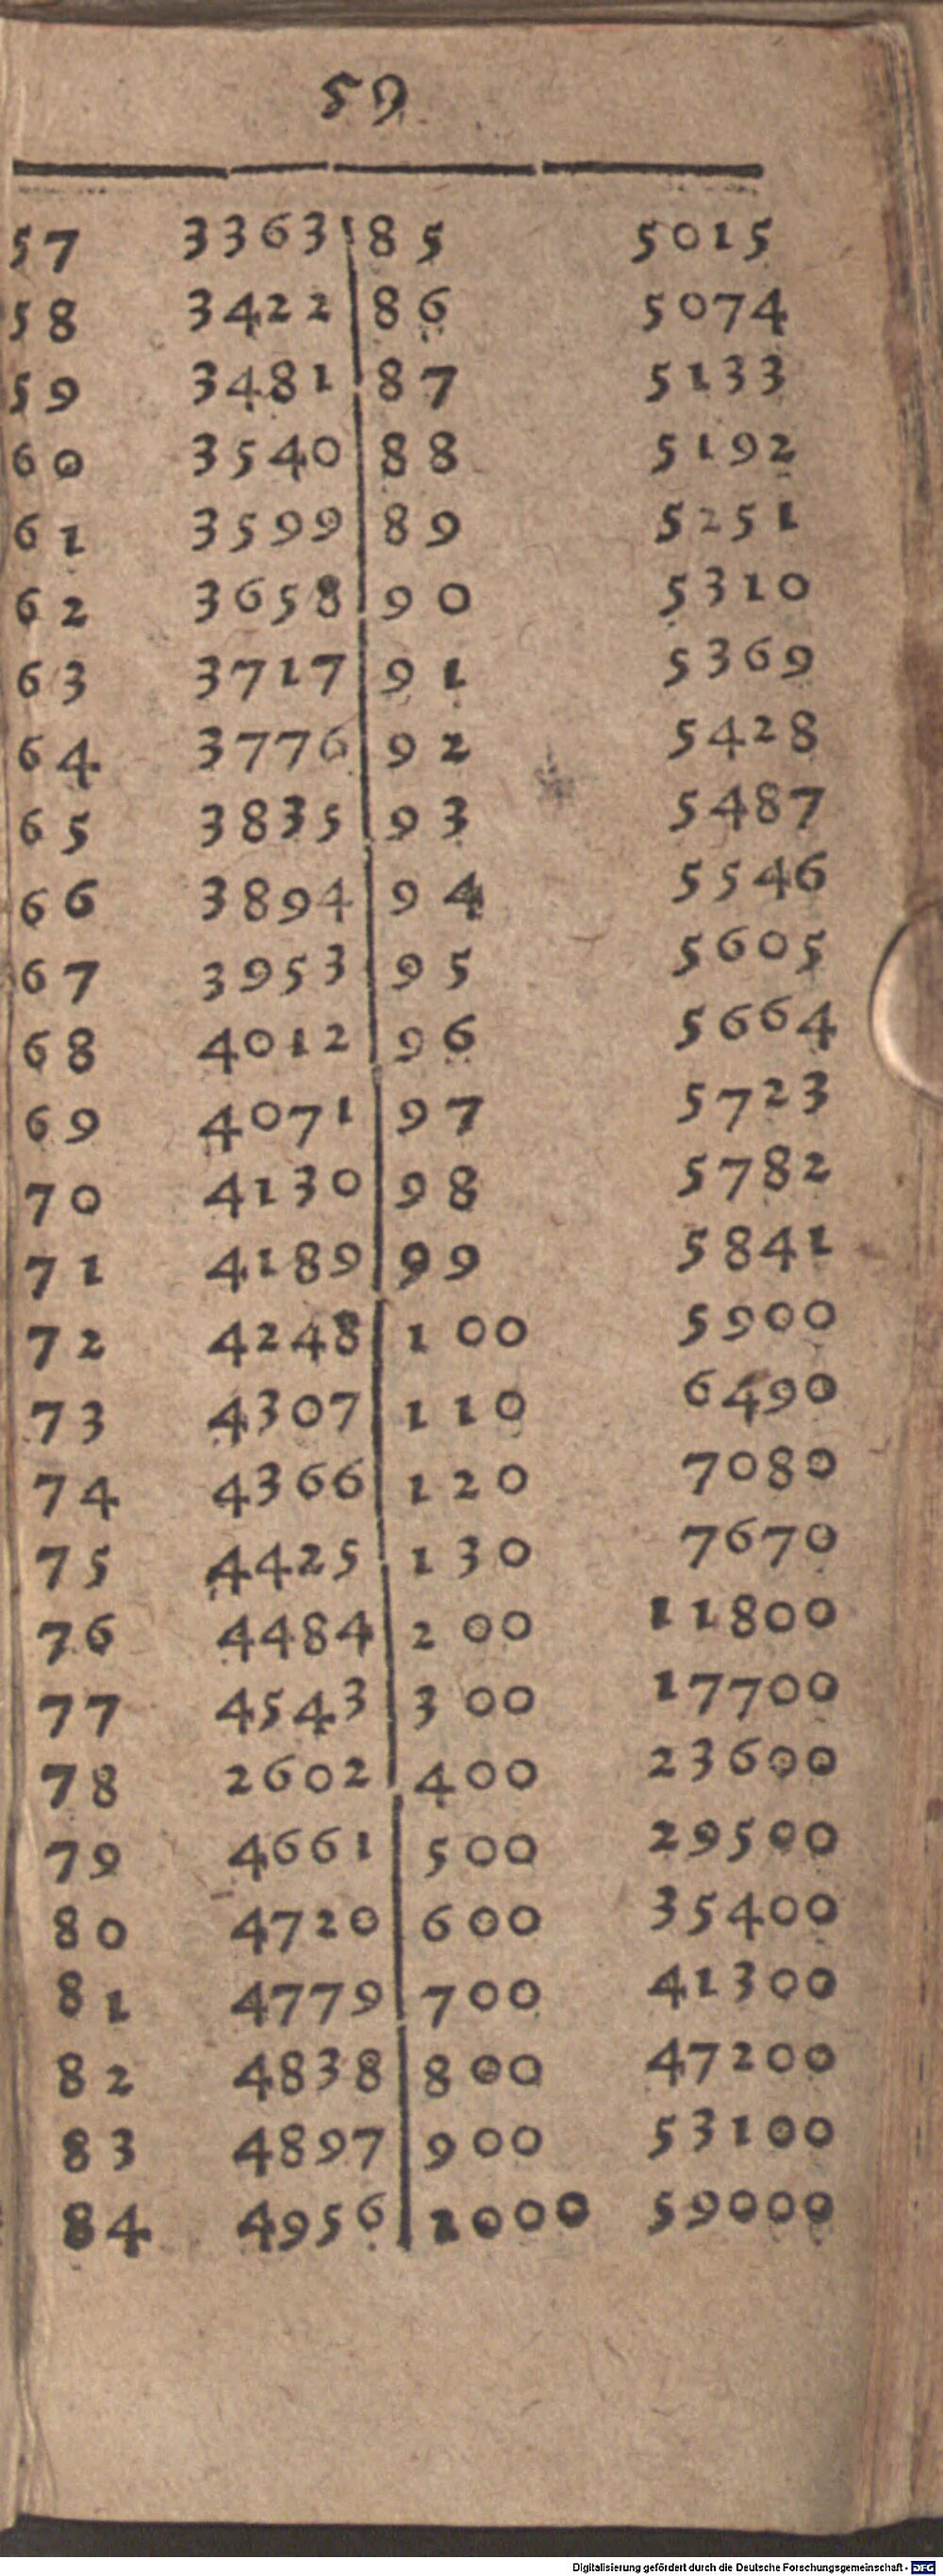 59
57 3363 85 5015
58 3422 86 5074
59 3481 87 5133
60 3540 88 5192
61 3599 89 5251
62 3658 90 5310
63 3717 91 5369
64 3776 92 5428
65 3835 93 5487
66 3894 94 5546
67 3953 95 5605
68 4012 96 5664
69 4071 97 5723
70 4130 98 5782
71 4189 99 5841
72 4248 100 5900
73 4307 110 6490
74 4366 120 7080
75 4425 130 7670
76 4484 200 11800
77 4543 300 17700
78 2602 400 23600
79 4661 500 29500
80 4720 600 35400
81 4779 700 41300
82 4838 800 47200
83 4897 900 53100
84 4956 1000 59000
Digitalisierung gefördert durch die Deutsche Forschungsgemeinschaft - DFG